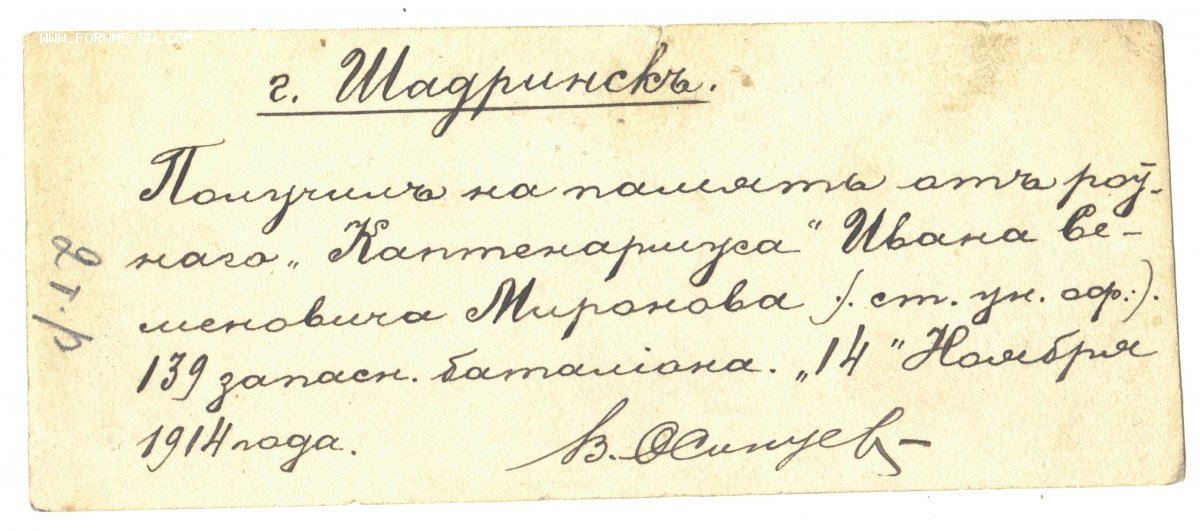 WWW.FORUMS-SU.COM
г. Шадринскъ.
Получилъ на память отъ рот-
наго „Каптенармуса“ Ивана Се-
меновича Миронова /. ст. ун. оф:).
139 запасн. баталіона. „14“ Ноября
1914 года.
В. Осинцев